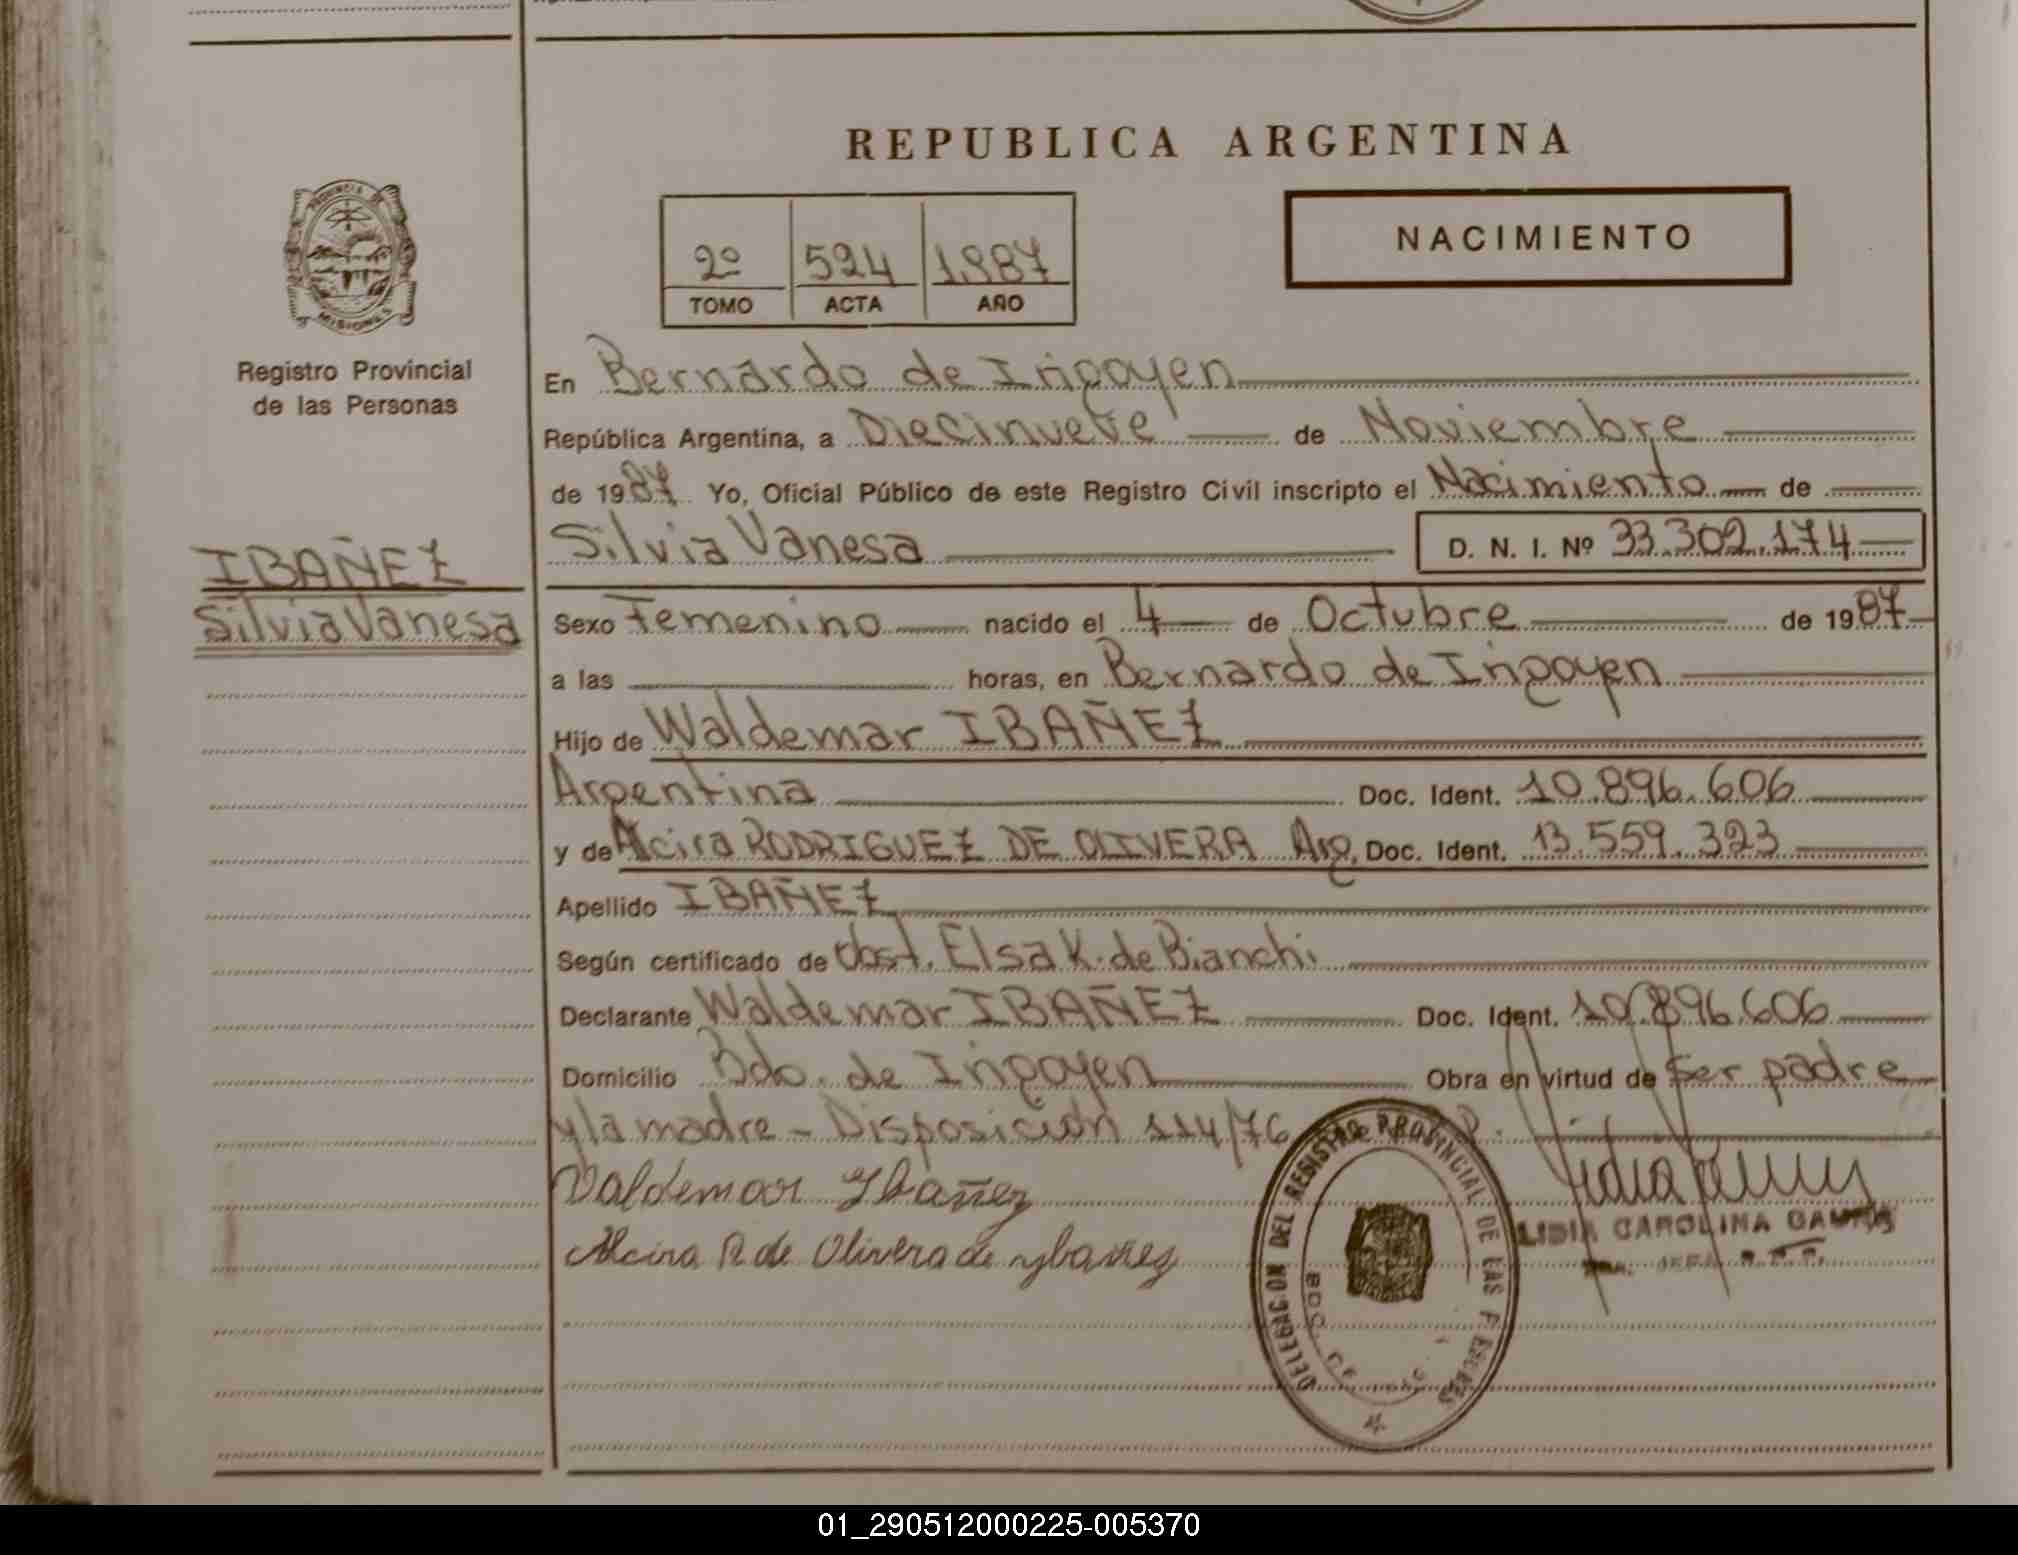 REPUBLICA ARGENTINA
PROVINCIA DE
MISIONES
2º 524 1987
TOMO ACTA AÑO
NACIMIENTO
Registro Provincial
de las Personas
En Bernardo de Irigoyen
República Argentina, a Diecinueve de Noviembre
de 1987 Yo, Oficial Público de este Registro Civil inscripto el Nacimiento de
IBAÑEZ
Silvia Vanesa
Silvia Vanesa D. N. I. Nº 33.302.174
Sexo Femenino nacido el 4 de Octubre de 1987
a las horas, en Bernardo de Irigoyen
Hijo de Waldemar IBAÑEZ
Argentina Doc. Ident. 10.896.606
y de Alcira RODRIGUEZ DE OLIVERA Arg. Doc. Ident. 13.559.323
Apellido IBAÑEZ
Según certificado de Obst. Elsa K. de Bianchi
Declarante Waldemar IBAÑEZ Doc. Ident. 10.896.606
Domicilio Bdo. de Irigoyen Obra en virtud de ser padre
y la madre - Disposición 114/76
Valdemar Ybañez
Alcira R. de Olivera de ybañez
DELEGACION DEL REGISTRO PROVINCIAL DE LAS
BDO. DE
LIDIA CAROLINA
01_290512000225-005370